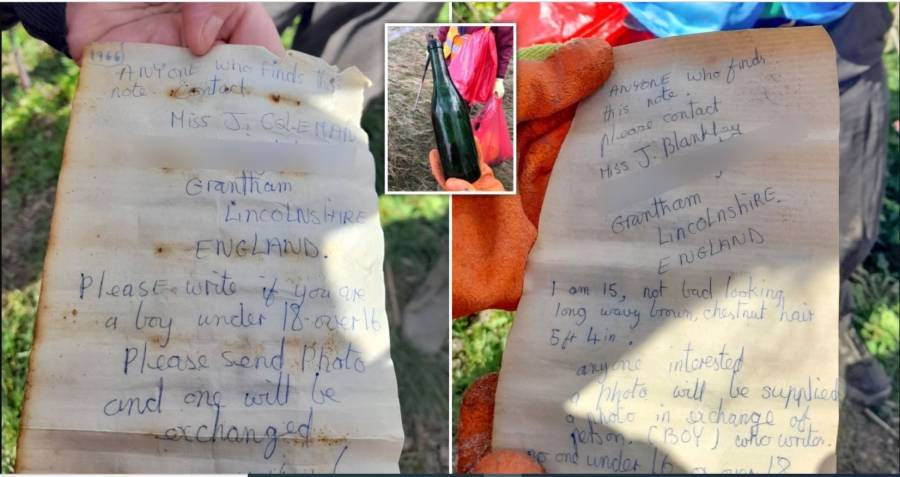 1966
ANYONE who finds this
note. Contact
Miss J. COLEMAN
Grantham
LINCOLNSHIRE
ENGLAND.
Please write if you are
a boy under 18-over 16
Please send Photo
and one will be
exchanged
ANYONE who finds
this note.
Please contact
Miss J. Blankley
Grantham
LINCOLNSHIRE.
ENGLAND
I am 15, not bad looking
long wavy brown, chestnut hair
5ft 4in.
anyone interested
a photo will be supplied
a photo in exchange of
person. (BOY) who writes.
no one under 16 or over 18